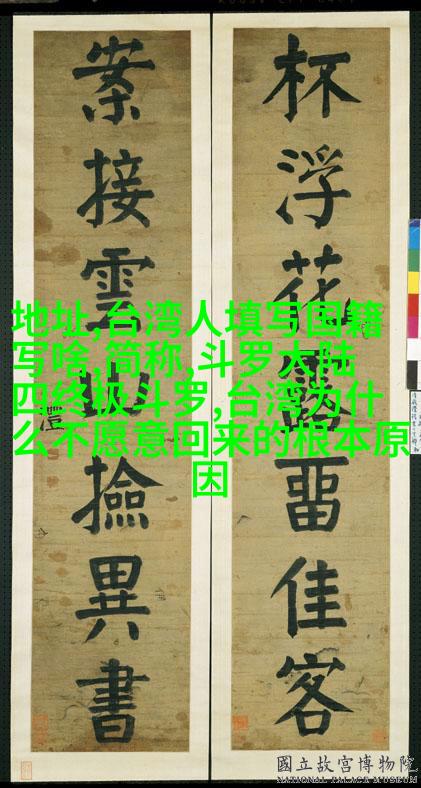 杯浮花露畱佳客
案接雲山撿異書
地址,台湾人填写国籍
写啥,简称,斗罗大陆
四终极斗罗,台湾为什
么不愿意回来的根本原
因
國立故宮博物院
NATIONAL PALACE MUSEUM